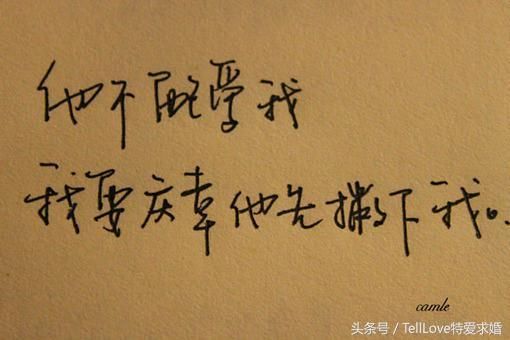 他不爱我
我要庆幸他先撇下我。
camle
头条号 / TellLove特爱求婚